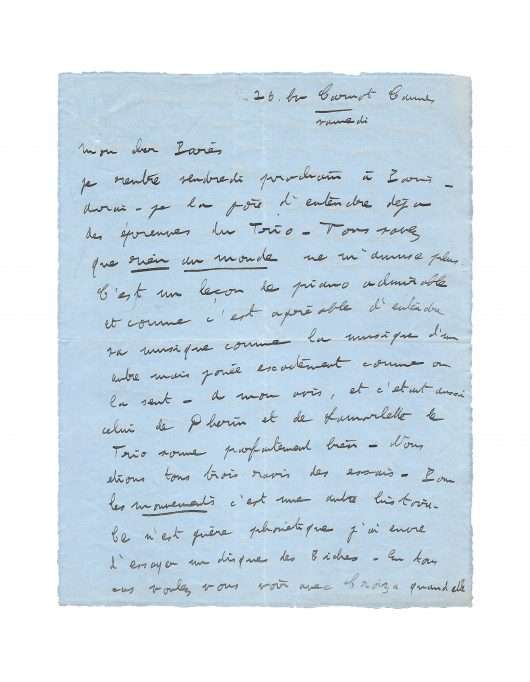 23. bd Carnot Cannes
samedi
mon cher
je rentre vendredi prochain à Paris -
aurai - je la joie d'entendre déjà
des épreuves du Trio - Vous savez
que rien au monde ne m'amuse plus.
C'est un leçon de piano admirable
et comme c'est agréable d'entendre
sa musique comme la musique d'un
autre mais jouée exactement comme on
la sent - A mon avis, et c'était aussi
celui de Dherin et de Lamorlette le
Trio sonne parfaitement bien -
étions tous trois ravis des essais - Pour
les mouvements c'est une autre histoire.
Ce n'est guère phonétique j'ai envie
d'essayer un disque des Biches - En tous
cas voulez vous voir avec Croiza quand elle